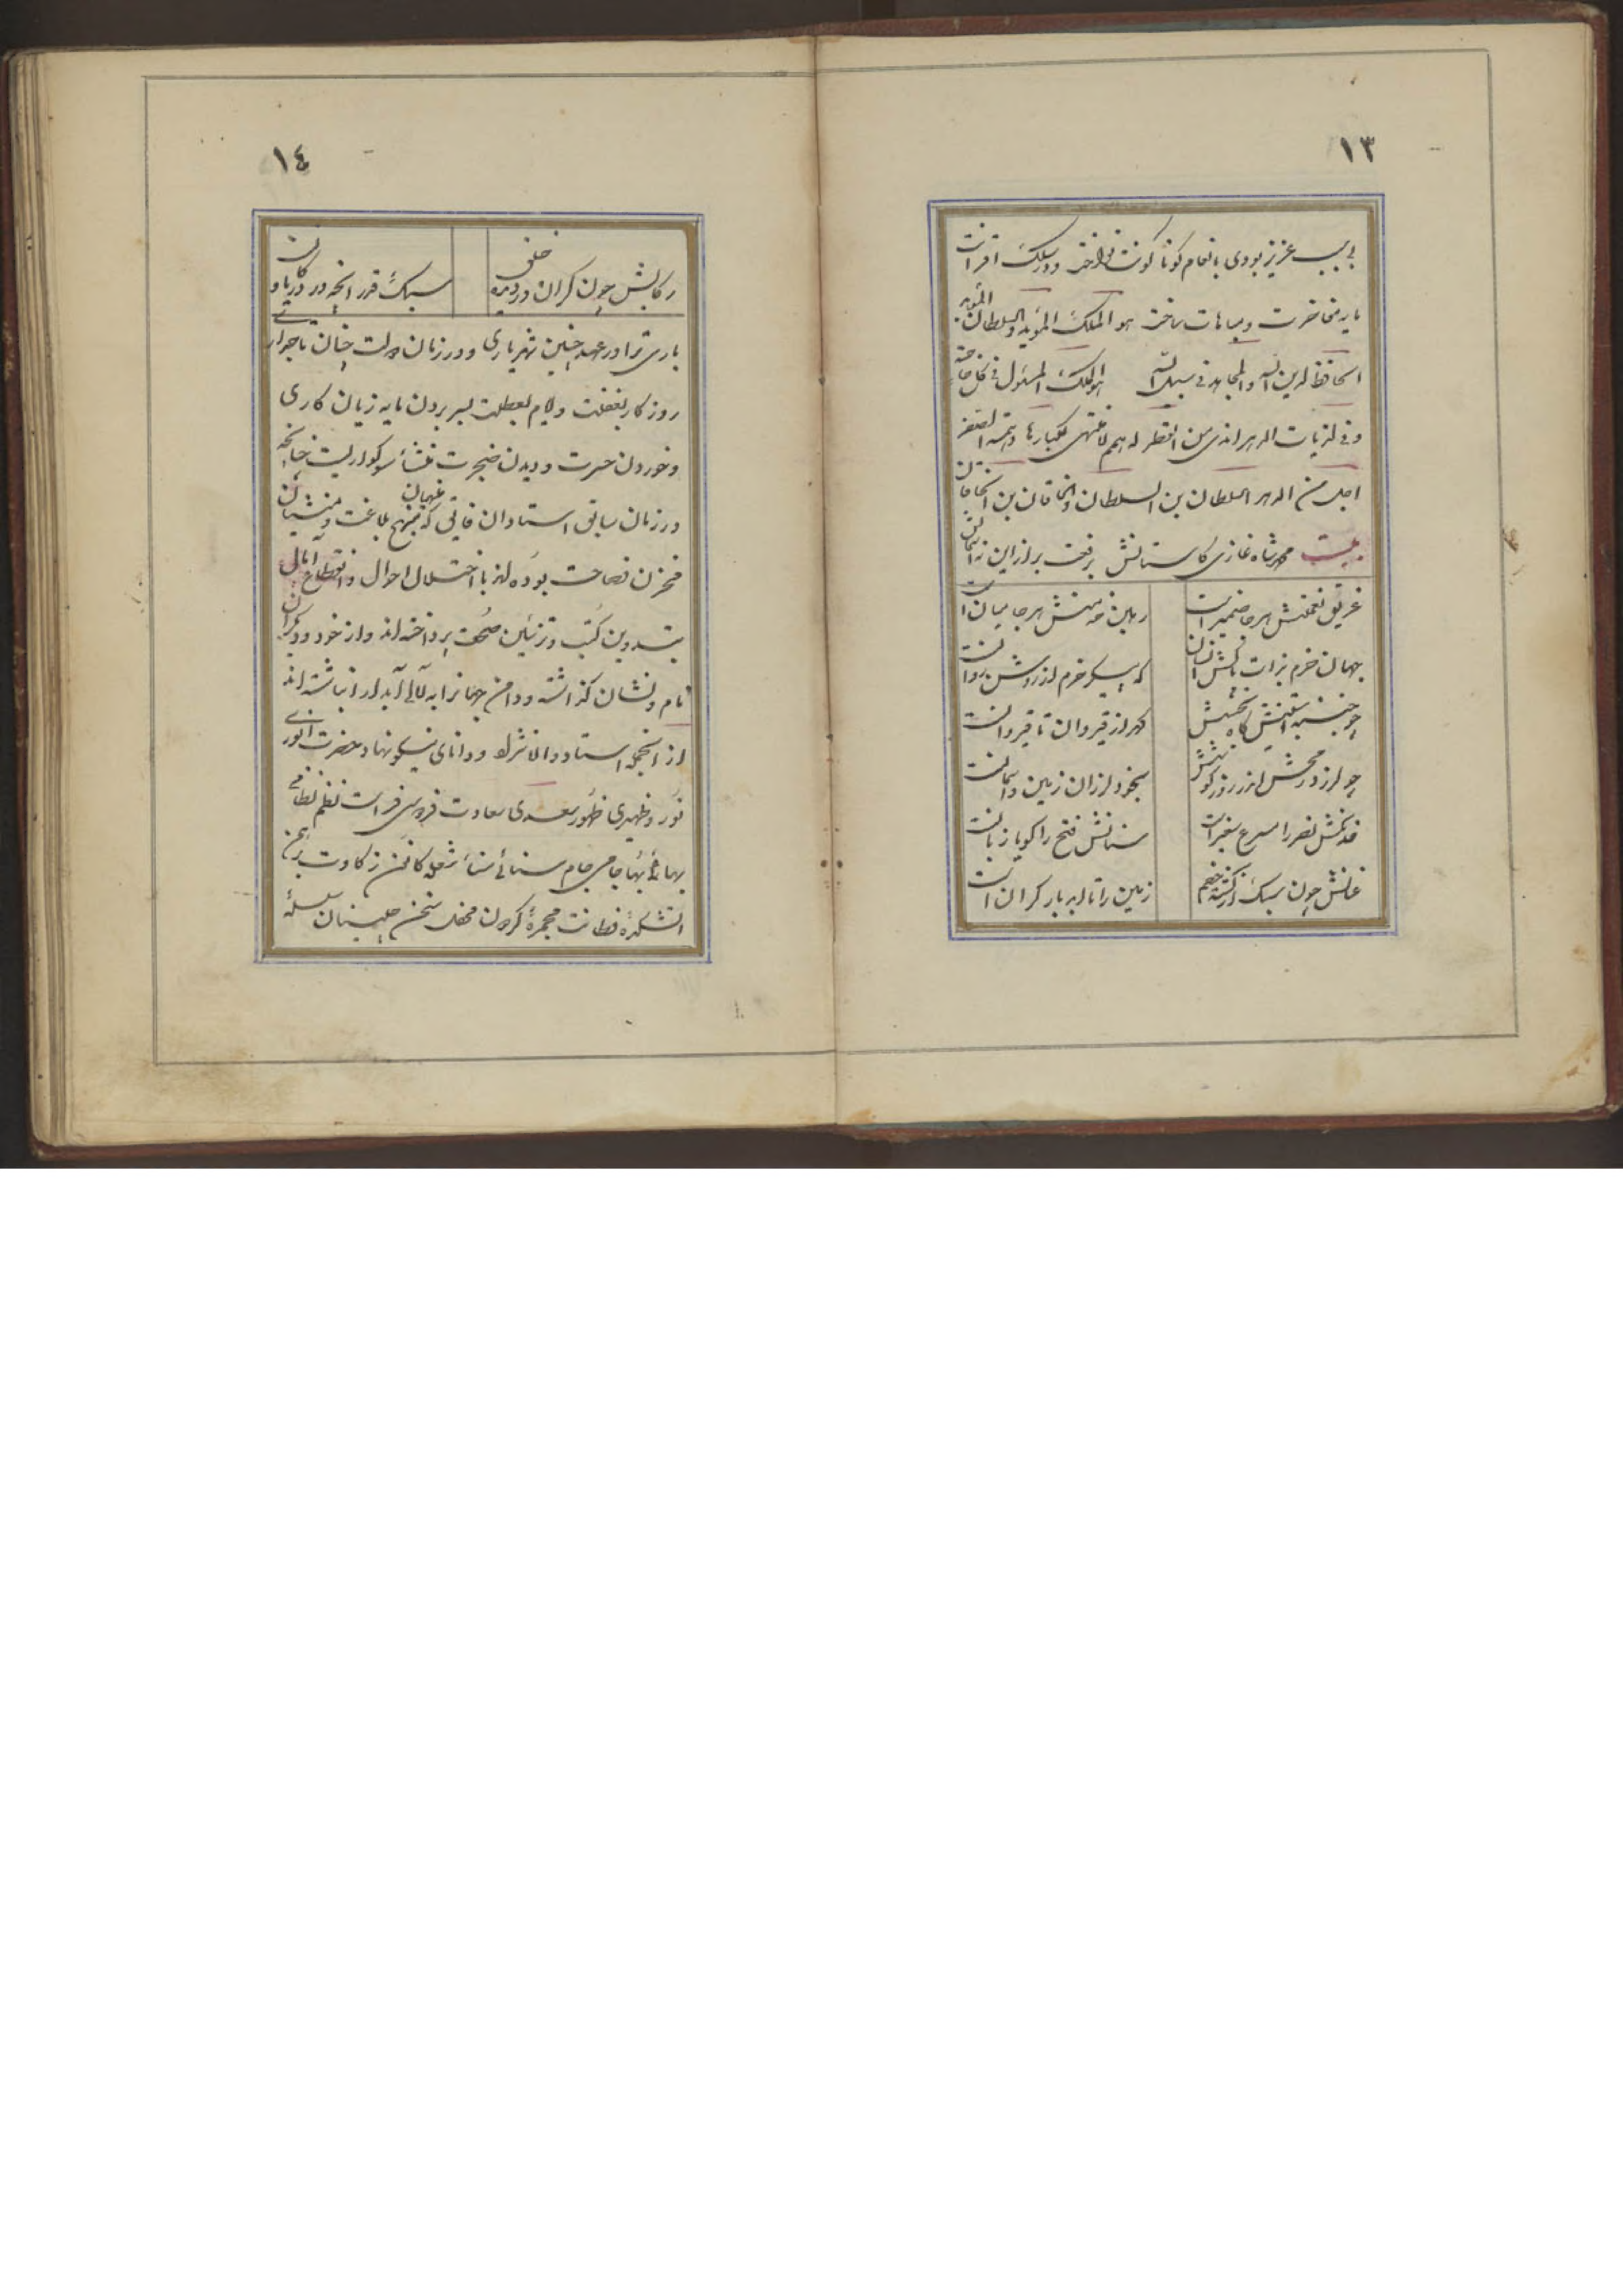 ١٣
بی سبب عزیز بودی بانعام کوناکونت نواخت ودر سلک اقرانت
مایه مفاخرت ومباهات ساخت هو الملک المؤید والسلطان المؤید
الحافظ لدین الله والمجاهد فی سبیل الله هو الملک المسئول فی کل حاجة
وفی لزبات الدهر اندی من القطر له همم لا منتهی لکبارها وهمته الصغر
اجل من الدهر السلطان بن السلطان والخاقان بن الخاقان
بیت محمد شاه غازی کاستانش برفعت برتر از این نه اسمان
غریق نعمتش هر جا ضمیر است
رهین منتش هر جا میان است
جهان خرم بذات پاکش ان سان
که پیکر خرم از روشن روانست
چو جنبد استینش کاه بخشش
کهر از قیروان تا قیروانست
چو لرزد پرچمش اندر روز کوشش
بخود لرزان زمین واسمانست
خدنکش نصر را مسرع سفیر است
سنانش فتح را کویا زبانست
عنانش چون سبک از کشته خصم
زمین را تا ابد بار کران است
١٤
رکابش چون کران در دیده خلق
سبک قدر انچه در دریا و کانست
باری ترا در عهد چنین شهریاری ودر زمان دولت چنان تاجداری
روزکار بغفلت وایام بعطلت بسر بردن مایه زیان کاری
وخوردن حسرت ودیدن ضجرت منشأ سوکواریست چنانچه
در زمان سابق استادان فایق که منهج بلاغت ومنشیان
مخزن فصاحت بوده اند با اختلال احوال وانقطاع آمال
بتدوین کتب وتزئین صحف پرداخته اند واز خود ودیکران
نام ونشان کذاشته ودامن جهانرا به لآلی آبدار انباشته اند
از انجمله استاد والانژاد ودانای نیکو نهاد حضرت انوری
نور وظهیری ظهور سعدی سعادت فردوسی فراست نظم نظامی
بهائی بها جامی جام سنائی سناء شعله کانون زکاوت
اتشکده فطانت مجمره کردان محفل سخن جلیسان سلسله